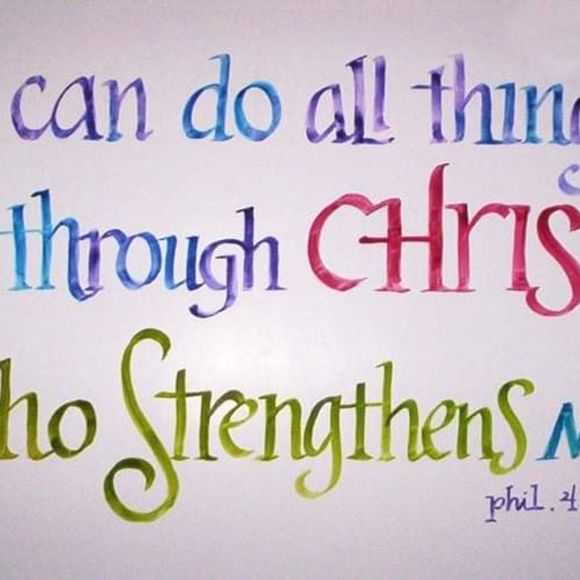 can do all thing
through Chris
ho Strengthens M
phil. 4